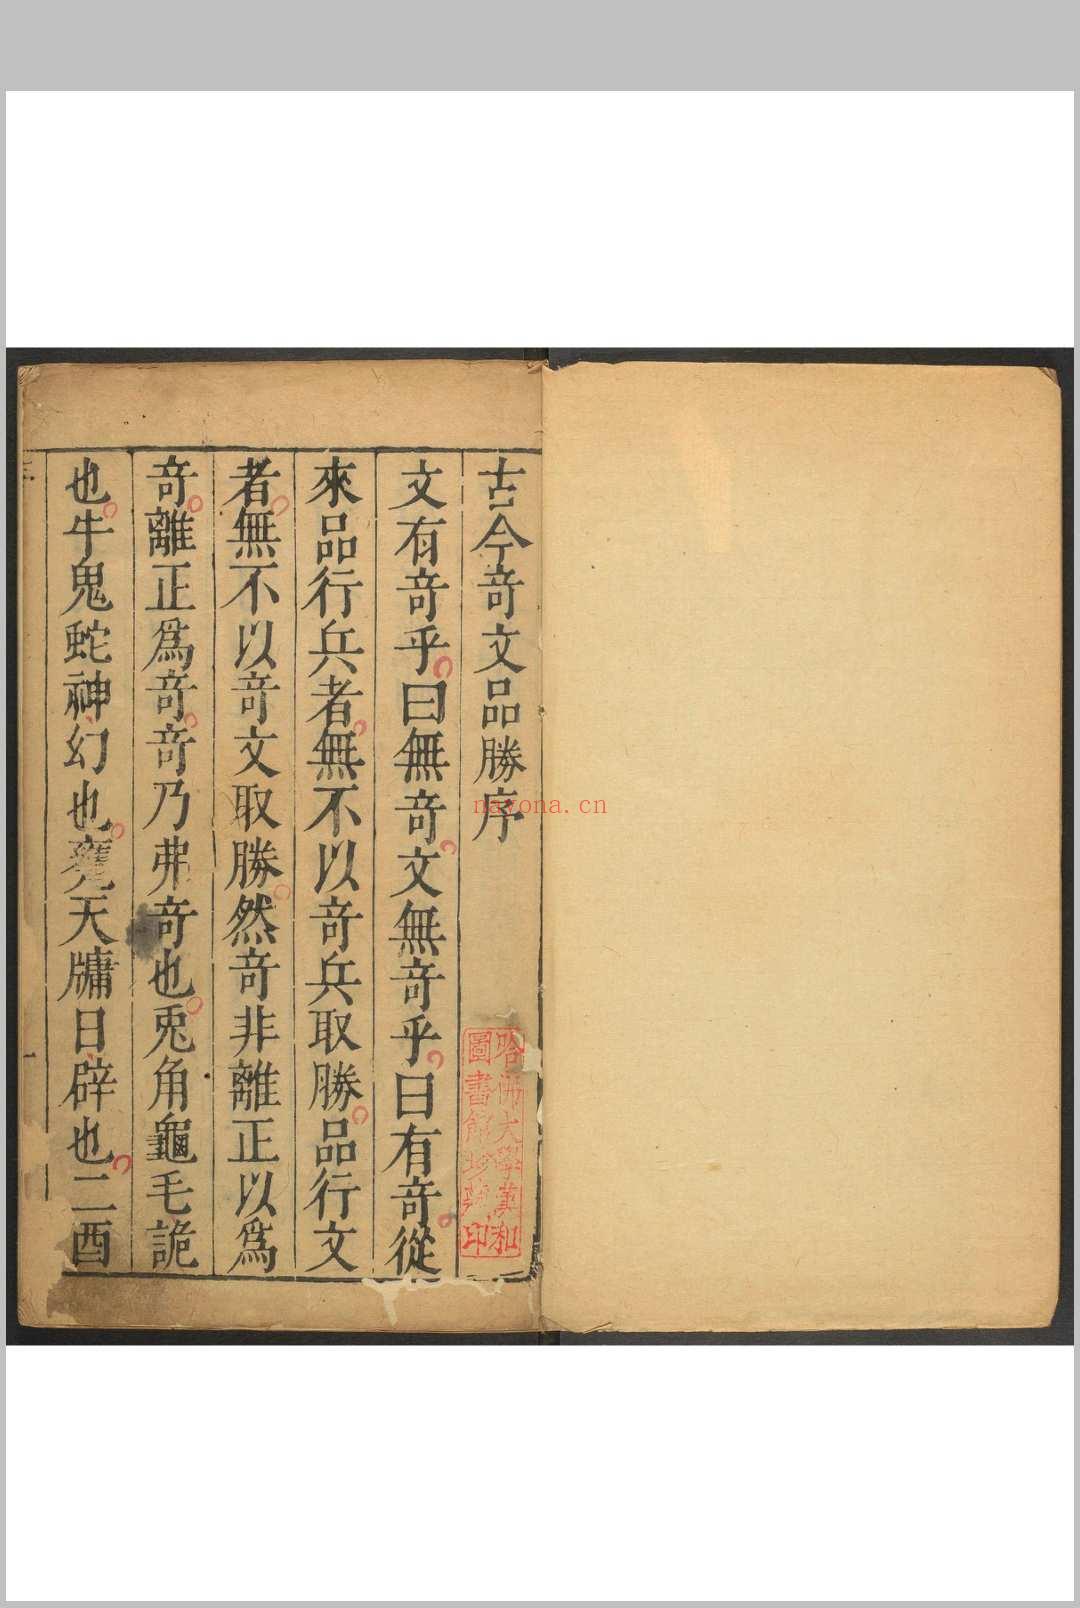 古今竒文品勝序
文有竒乎曰無竒文無竒乎曰有竒從
來品行兵者無不以竒兵取勝品行文
者無不以竒文取勝然竒非離正以爲
竒離正爲竒竒乃弗竒也兎角龜毛詭
也牛鬼蛇神幻也甕天牗日辟也二酉
哈佛大學漢和
圖書館珍藏印
nayona.cn